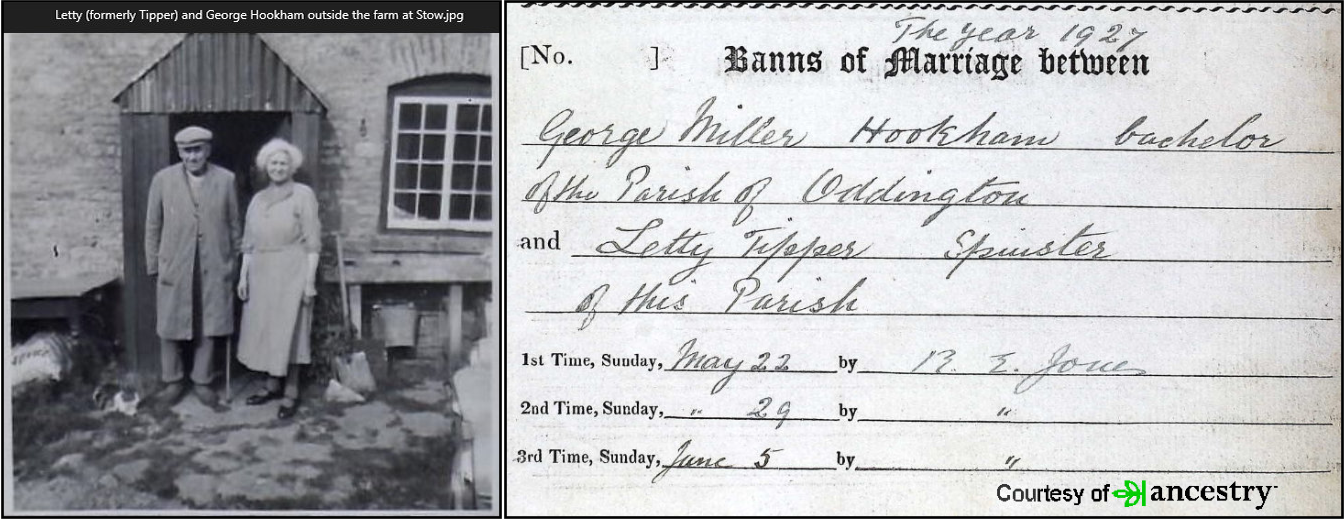 Letty (formerly Tipper) and George Hookham outside the farm at Stow.jpg
The Year 1927
[No. ] Banns of Marriage between
George Miller Hookham bachelor
of the Parish of Oddington
and Letty Tipper Spinster
of this Parish
1st Time, Sunday, May 22 by R. E. Jones
2nd Time, Sunday, " 29 by "
3rd Time, Sunday, June 5 by "
Courtesy of ancestry